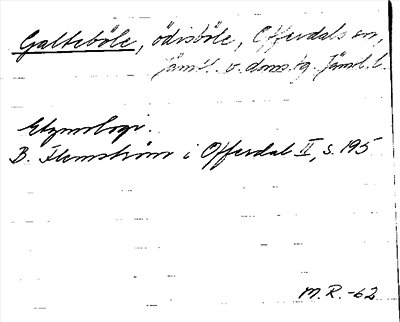 Galteböle, ödesböle, Offerdals sn,
Jämtl. v. doms.tg. Jämtl. l.
Etymologi.
B. Flemström i Offerdal II, s. 195
M.R. -62